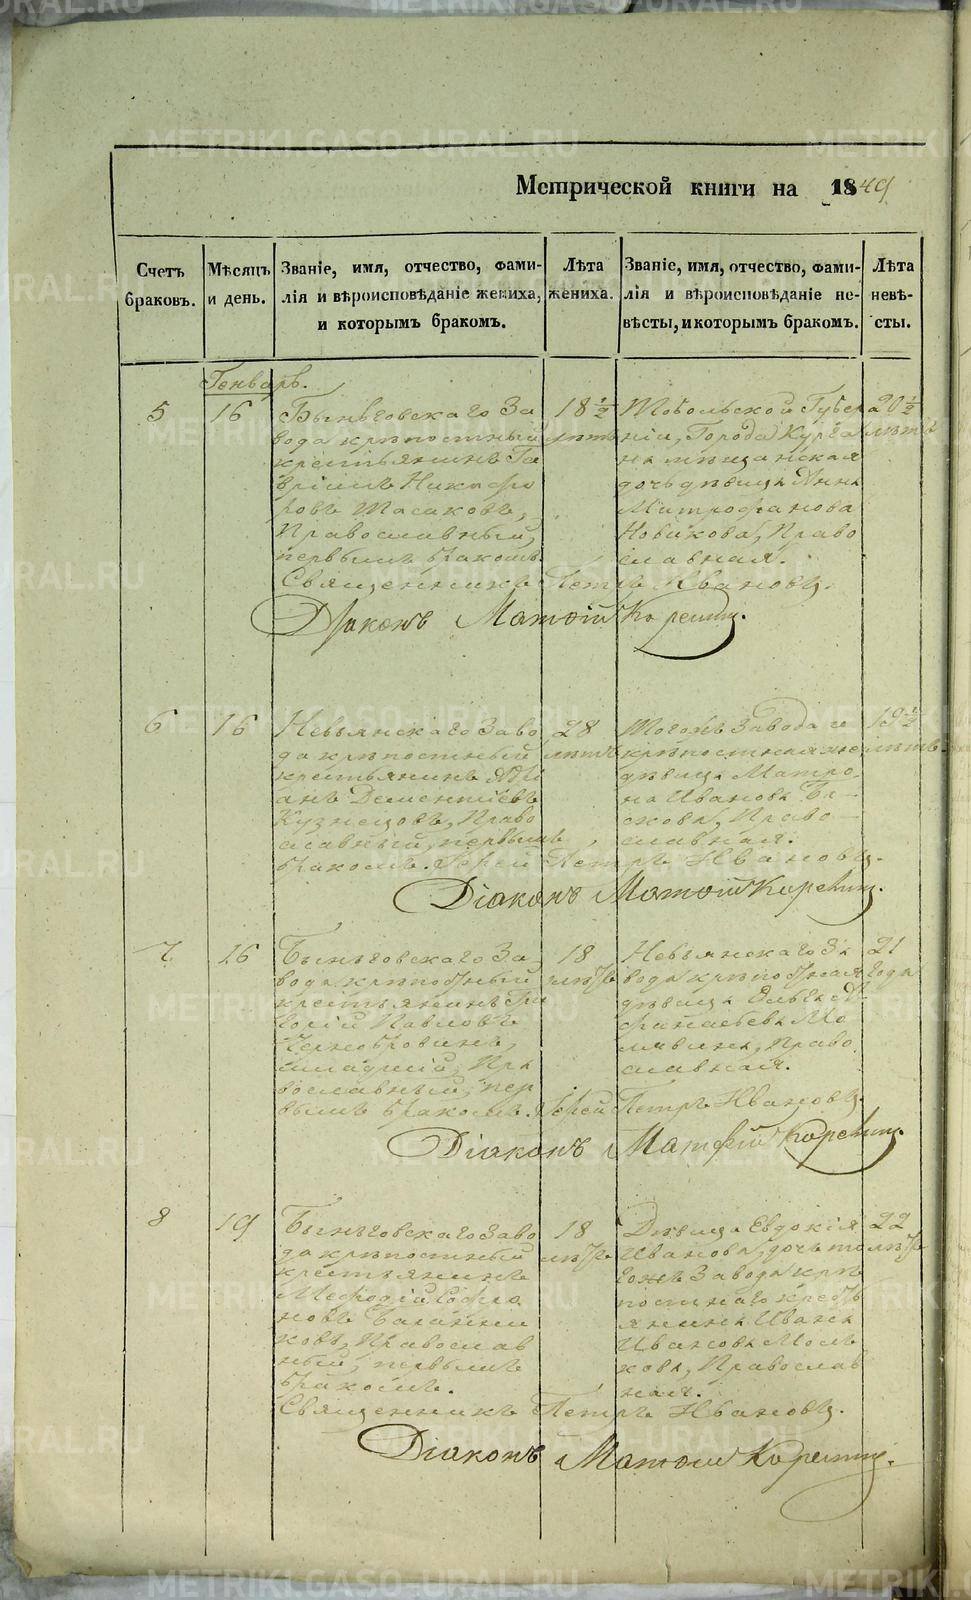 Метрической книги на 1849
Счетъ браковъ.
Мѣсяцъ и день.
Званіе, имя, отчество, фами-
лія и вѣроисповѣданіе жениха,
и которымъ бракомъ.
Лѣта жениха.
Званіе, имя, отчество, фами-
лія и вѣроисповѣданіе не-
вѣсты, и которымъ бракомъ.
Лѣта невѣ-
сты.
Генварь.
5
16
Быньговскаго За
вода крѣпостный
крестьянинъ Га
вріилъ Никифо
ровъ
Православный,
первымъ бракомъ.
18 ½
лѣтъ
Тобольской Губер
ніи, Города Курга
на мѣщанская
дочь дѣвица Анна
Митрофанова
Новикова, Право
славная.
20 ½
лѣтъ
Священникъ Петръ Ивановъ.
Діаконъ Матѳій
6
16
Невьянскаго Заво
да крѣпостный
крестьянинъ
Дементіевъ
Кузнецовъ, Право
славный, первымъ
бракомъ.
28
лѣтъ
Тогожъ Завода
крѣпостная
дѣвица Матро
на Иванова
Право-
славная.
19 ½
лѣтъ
Іерей Петръ Ивановъ.
Діаконъ Матѳій
7
16
Быньговскаго За
вода крѣпостный
крестьянинъ Гри
горій Павловъ
Чернобровинъ,
младшій, Пра
вославный, пер
вымъ бракомъ.
18
лѣтъ
Невьянскаго За
вода крѣпостная
дѣвица
Право
славная.
21
года
Іерей Петръ Ивановъ.
Діаконъ Матѳій
8
19
Быньговскаго Заво
да крѣпостный
крестьянинъ
Меѳодій Софро
новъ
Православ
ный, первымъ
бракомъ.
18
лѣтъ
Дѣвица Евдокія
Иванова, дочь то
гожъ Завода крѣ
постнаго кресть
янина Ивана
Иванова
Православ
ная.
22
лѣтъ
Священникъ Петръ Ивановъ.
Діаконъ Матѳій
METRIKI.GASO-URAL.RU